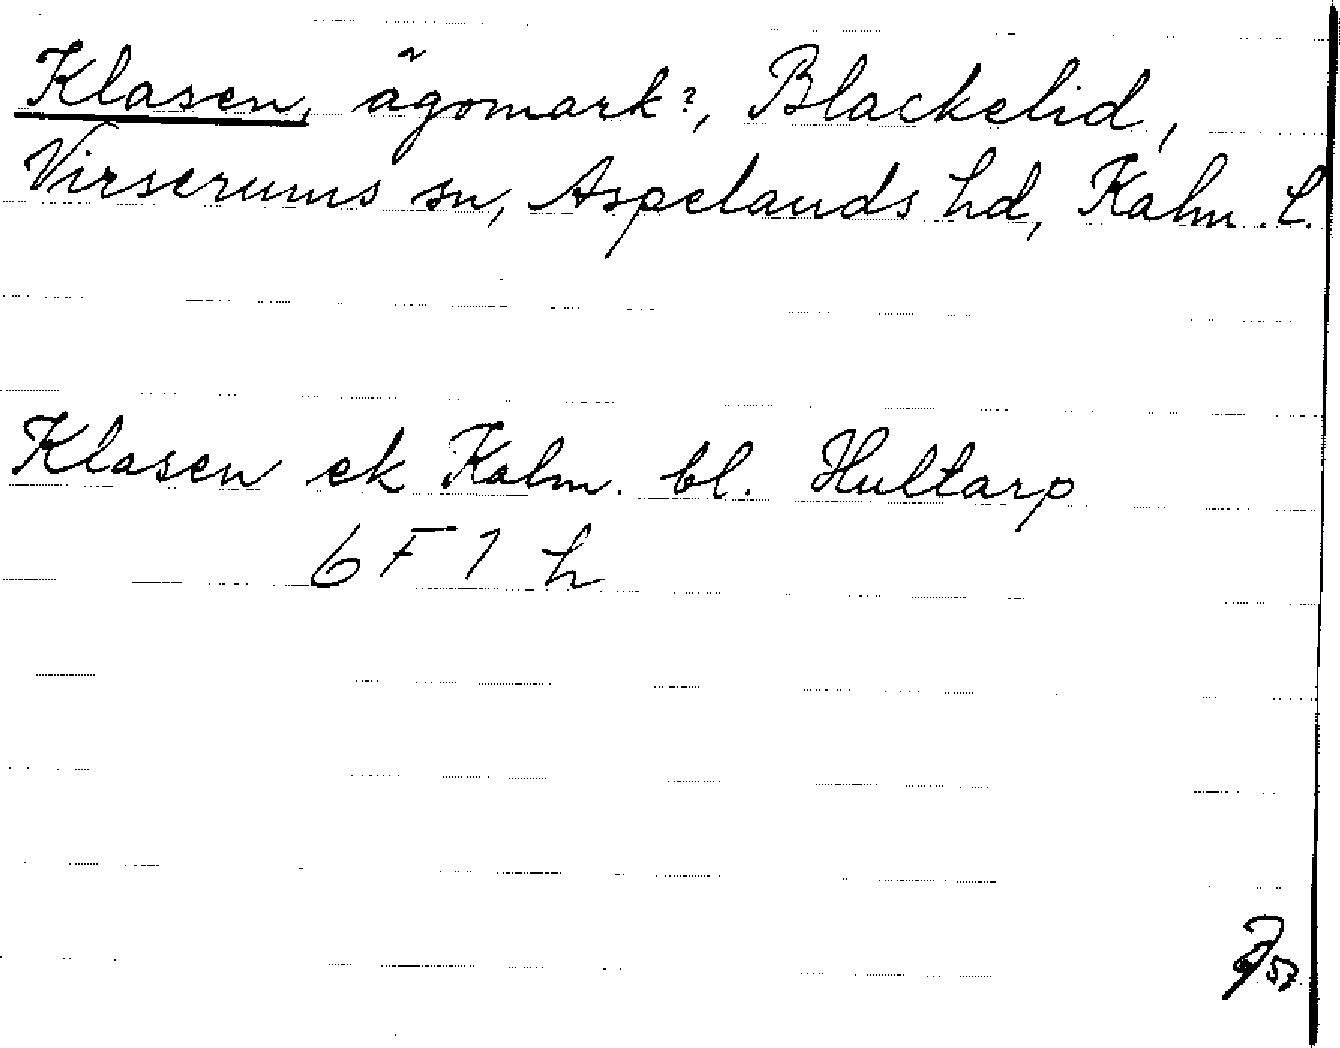 Klasen, ägomark?, Blackelid,
Virserums sn, Aspelands hd, Kalm. L.
Klasen ek Kalm. bl. Hultarp
6 F 1 h